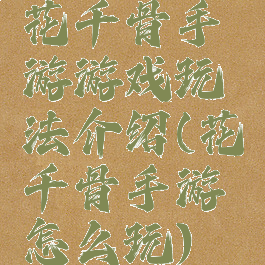 花千骨手
游游戏玩
法介绍(花
千骨手游
怎么玩)